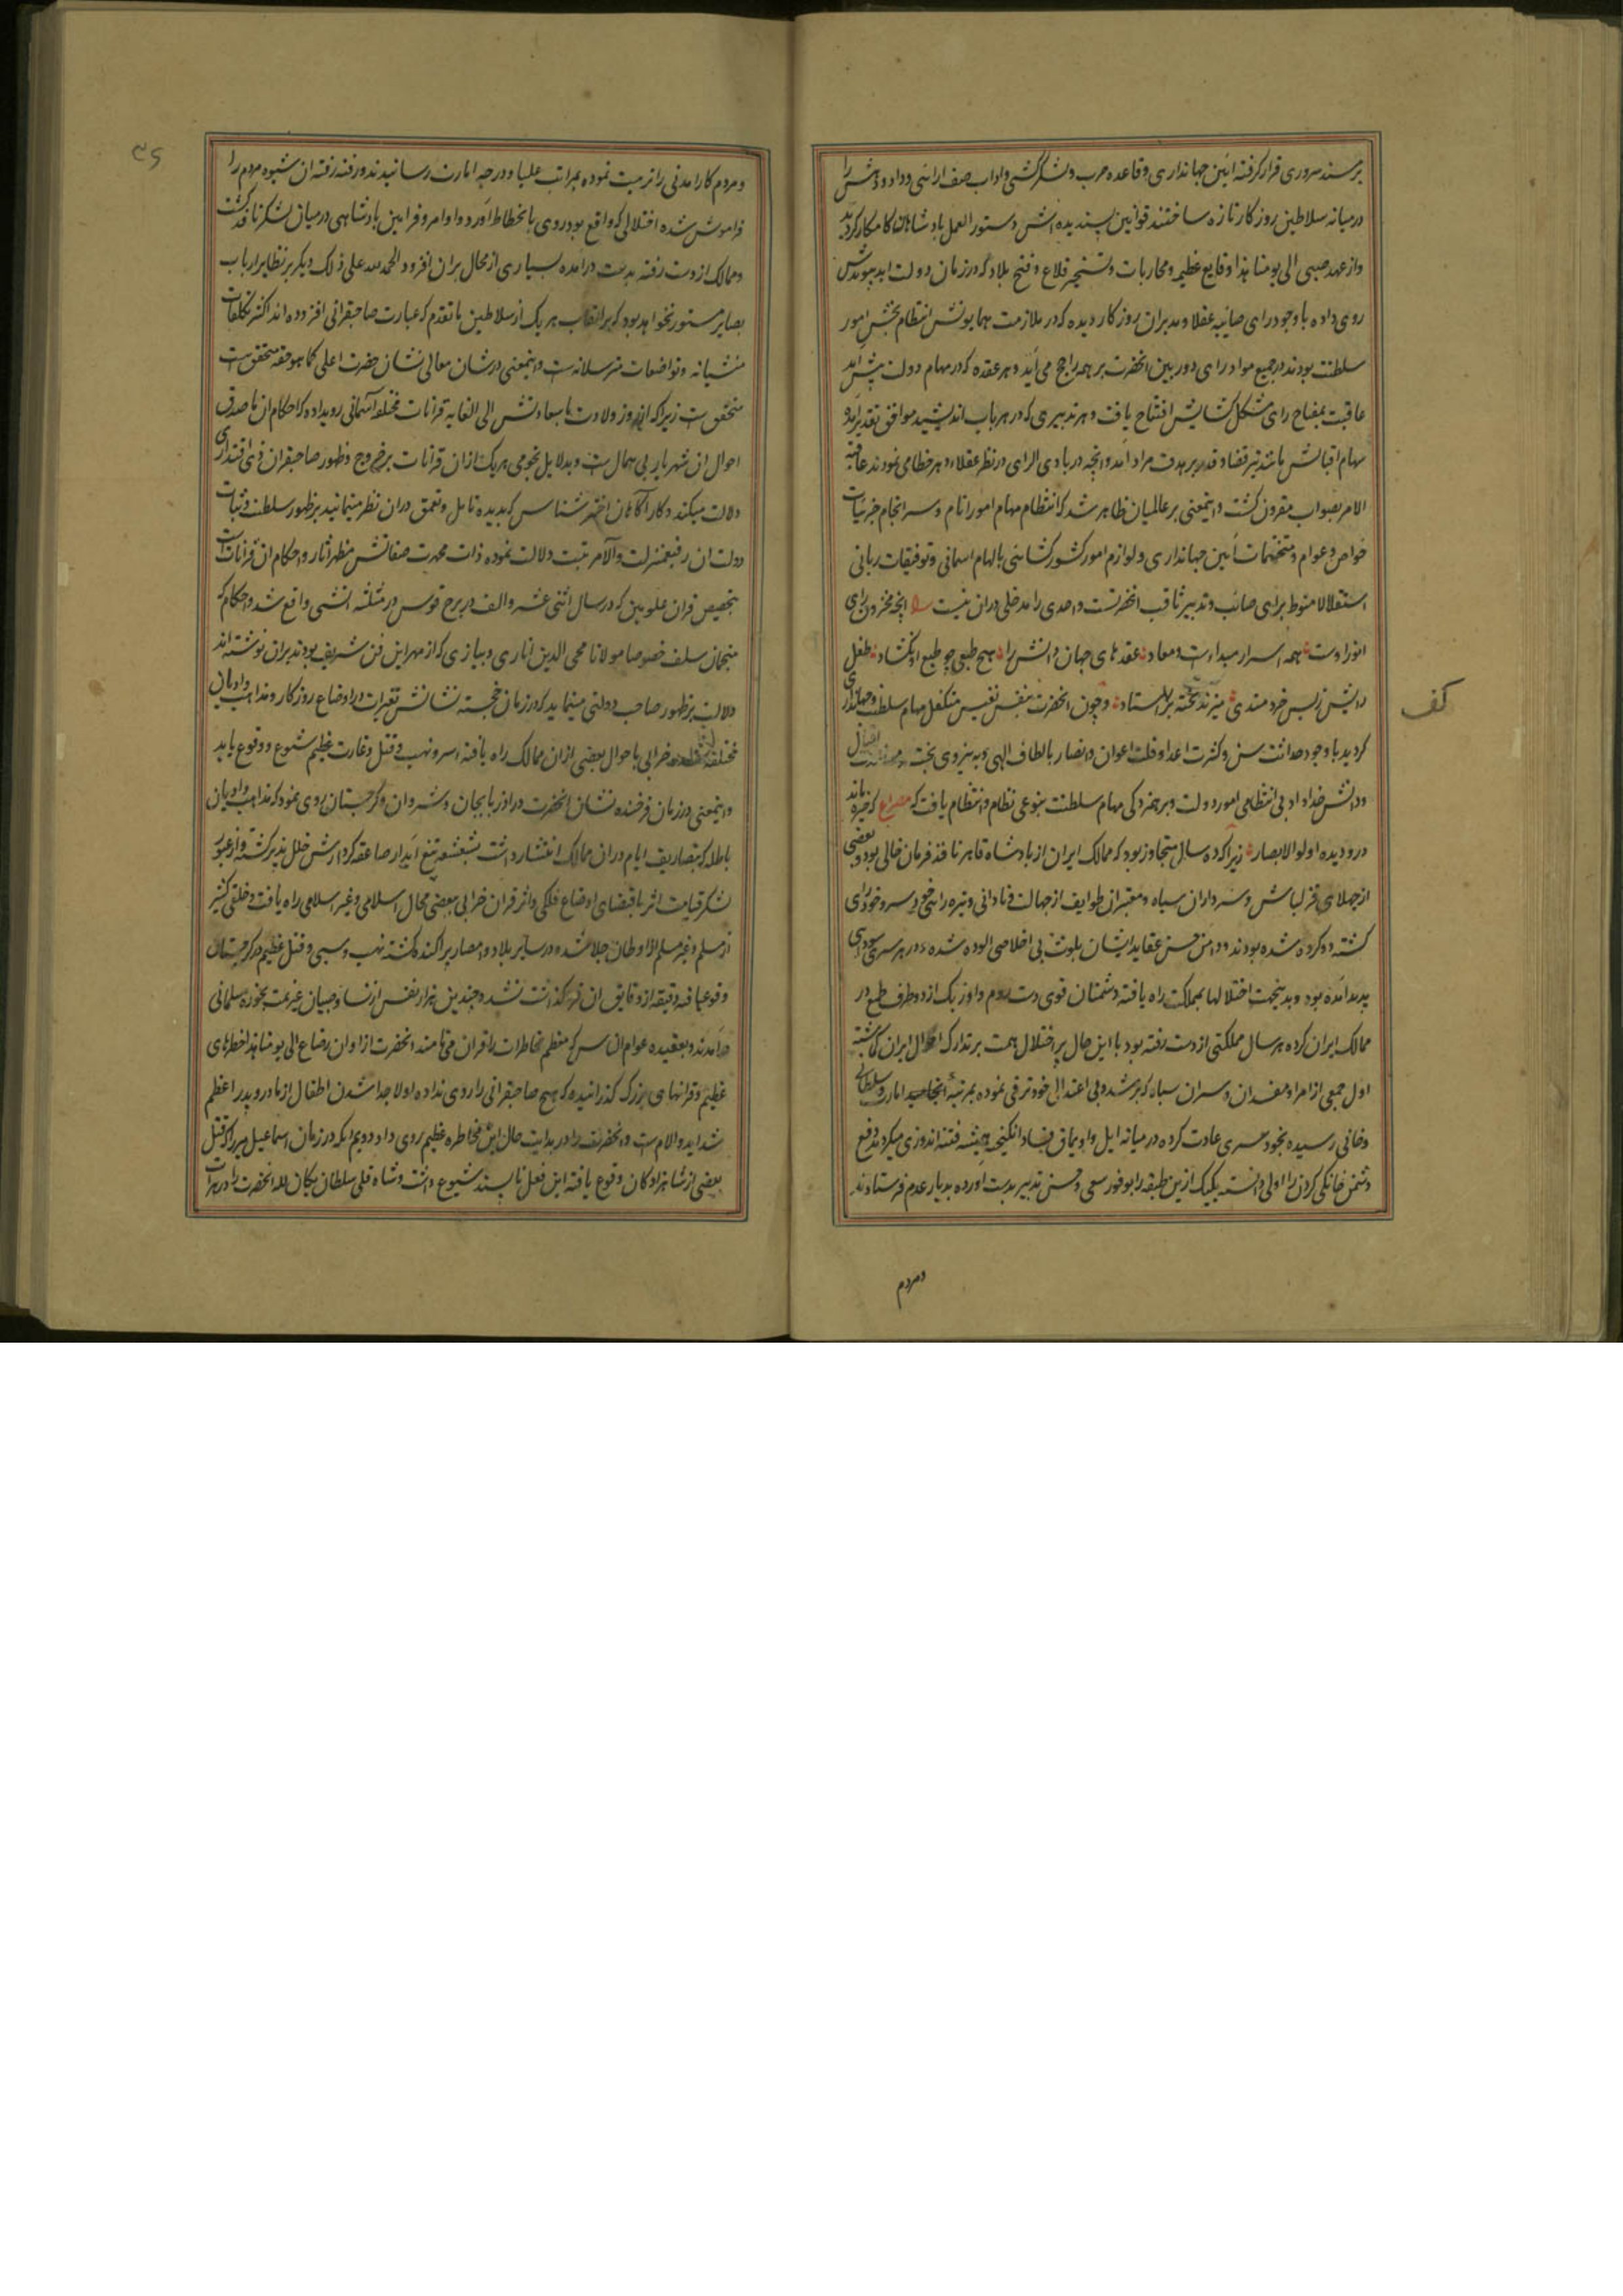 برمسند سروری قرار گرفته ائین جهانداری و قاعده حرب و لشکر کشی و اداب صف ارائی و داد و دهش را
در میانه سلاطین روزکار تازه ساختند قوانین پسندیده اش دستور العمل بادشاهان کامکار کردید
و از عهد صبی الی یومنا هذا وقایع عظیم و محاربات و تسخیر قلاع و فتح بلاد که در زمان دولت ابد پیوندش
روی داده با وجود رای صائبه عقلا و مدبران روزکار دیده که در ملازمت همایونش انتظام بخش امور
سلطنت بودند در جمیع مواد رای دوربین انحضرت بر همه راجح می آید و هر عقده که در مهام دولت پیش آمد
عاقبت بمفتاح رای مشکل کشایش افتتاح یافت و هر تدبیری که در هر باب اندیشید موافق تقدیر آمد و
سهام اقبالش مانند تیر قضا و قدر بر هدف مراد آمد و انچه در بادی الرای در نظر عقلا و هر خطا می نمودند عاقبة
الامر بصواب مقرون کشت و اینمعنی بر عالمیان ظاهر شد که انتظام مهام امور انام و سرانجام جزئیات
خواص و عوام و متخمات آئین جهانداری و لوازم امور کشور کشائی بالهام اسمانی و توفیقات ربانی
استقلالا منوط برای صائب و تدبیر ثاقب انحضرتست و احدی را مدخلی دران نیست انچه مخزون رای
انور اوست همه اسرار مبداءست و معاد عقدهای جهان دانش را هیچ طبعی چو طبع او نکشاد طفل
رایش ز بس خردمندی میزند تخته بر استاد و چون انحضرت بنفس نفیس متکفل مهام سلطنت و جهانداری
کردید با وجود حداثت سن و کثرت اعدا و قلت اعوان و انصار بالطاف الهی و به نیروی بخت
و دانش خداداد بی انتظامی امور دولت و برهمزدکی مهام سلطنت بنوعی نظام و انتظام یافت که مصراع که خیره ماند
درو دیده اولوالابصار زیرا که ده سال متجاوز بود که ممالک ایران از بادشاه قاهر نافذ فرمان خالی بود و بعضی
از جهلای قزلباش و سرداران سپاه و معتبران طوایف از جهالت و نادانی و تیره رائی خود سر و خود رای
کشته دو کرده شده بودند و دامن حسن عقاید ایشان بلوث بی اخلاصی الوده شده در هر سری سودای
پدید امده بود و بدینجهت اختلالها بمملکت راه یافته دشمنان قوی دست روم و اوزبک از دو طرف طمع در
ممالک ایران کرده هر سال مملکتی از دست رفته بود با این حال پر اختلال همت بر تدارک احوال ایران کماشته
اول جمعی از امرا و مفسدان و سران سپاه که برشد و بی اعتدالی خود ترقی نموده بمرتبه امارت و سلطانی
و خانی رسیده بخودسری عادت کرده در میانه ایل و اویماق فساد انکیخته همیشه فتنه اندوزی میکردند دفع
دشمن خانکی کردن را اولی دانسته یکیک ازین طبقه را بوفور سعی و حسن تدبیر بدست اورده بدیار عدم فرستادند
ومردم
کف
و مردم کارامدنی را تربیت نموده بمراتب علیا و درجه امارت رسانیدند و رفته رفته ان شیوه مردم را
فراموش شده اختلالی که واقع بود روی بانحطاط آورد و اوامر و فرامین بادشاهی در میان لشکر نافذ کشت
و ممالک از دست رفته بدست درامده بسیاری از محال بران افزود الحمد لله علی ذلک دیکر بر نظایر ارباب
بصایر مستور نخواهد بود که بر القاب هر یک از سلاطین ما تقدم که عبارت صاحبقرانی افزوده اند اکثر تکلفات
منشیانه و تواضعات مترسلانه است و اینمعنی در شان معالی نشان حضرت اعلی کما هو حقه متحقق است
متحقق است زیرا که از روز ولادت با سعادتش الی الغایه قرانات مختلفه آسمانی رویداده که احکام ان با صدق
احوال ان شهریار بی همال است و بدلایل نجومی هر یک ازان قرانات بر خروج و ظهور صاحبقران ذی اقتداری
دلالت میکند و کار آکاهان اختر شناس که بدیده تامل و تعمق دران نظر مینمایند بر ظهور سلطنت و ثبات
دولت ان رفیعمنزلت والآ مرتبت دلالت نموده ذات محمدت صفاتش مظهر آثار و احکام ان قرانات است
بتخصیص قران علویین که در سال اثنی عشر و الف در برج قوس در مثلثه اتشی واقع شد و احکام که
منجمان سلف خصوصا مولانا محی الدین اناری و بیازی که از مهره این فن شریف بودند بران نوشته اند
دلالت بر ظهور صاحب دولتی مینماید که در زمان خجسته نشانش تغیرات در اوضاع روزکار و مذاهب و ادیان
مختلفه خرابی باحوال بعضی ازان ممالک راه یافته اسر و نهب و قتل و غارت عظیم شیوع و وقوع یابد
و اینمعنی در زمان فرخنده نشان انحضرت در اذربایجان و شیروان و کرجستان روی نمود که مذاهب و ادیان
باطله که بتصاریف ایام دران ممالک انتشار داشت بشعشعه تیغ آبدار صاعقه کردارش خلل پذیر کشته و از عبور
لشکر قیامت اثر باقتضای اوضاع فلکی و اثر قران خرابی ببعضی محال اسلامی و غیر اسلامی راه یافت و خلقی کثیر
از مسلم و غیر مسلم از اوطان جلا شده و در سایر بلاد و امصار پراکنده کشته نهب و سبی و قتل عظیم در کرجستان
وقوع یافته دقیقه از دقایق ان فروکذاشت نشد و چندین هزار نفس از نسا و صبیان غنیمت بحوزه مسلمانی
درآمدند و بعقیده عوام الناس که معظم مخاطرات را قران می نامند انحضرت از اوان رضاع الی یومنا هذا خطرهای
عظیم و قرانهای بزرک کذرانیده که هیچ صاحبقرانی را روی نداده اولا جدا شدن اطفال از مادر و پدر اعظم
شداید و الام است و انحضرت را در بدایت حال این مخاطره عظیم روی داد دویم انکه در زمان اسماعیل میرزا که قتل
بعضی از شاهزادکان وقوع یافته این فعل ناپسند شیوع داشت و شاه قلی سلطان یکان لله انحضرت را در هرات